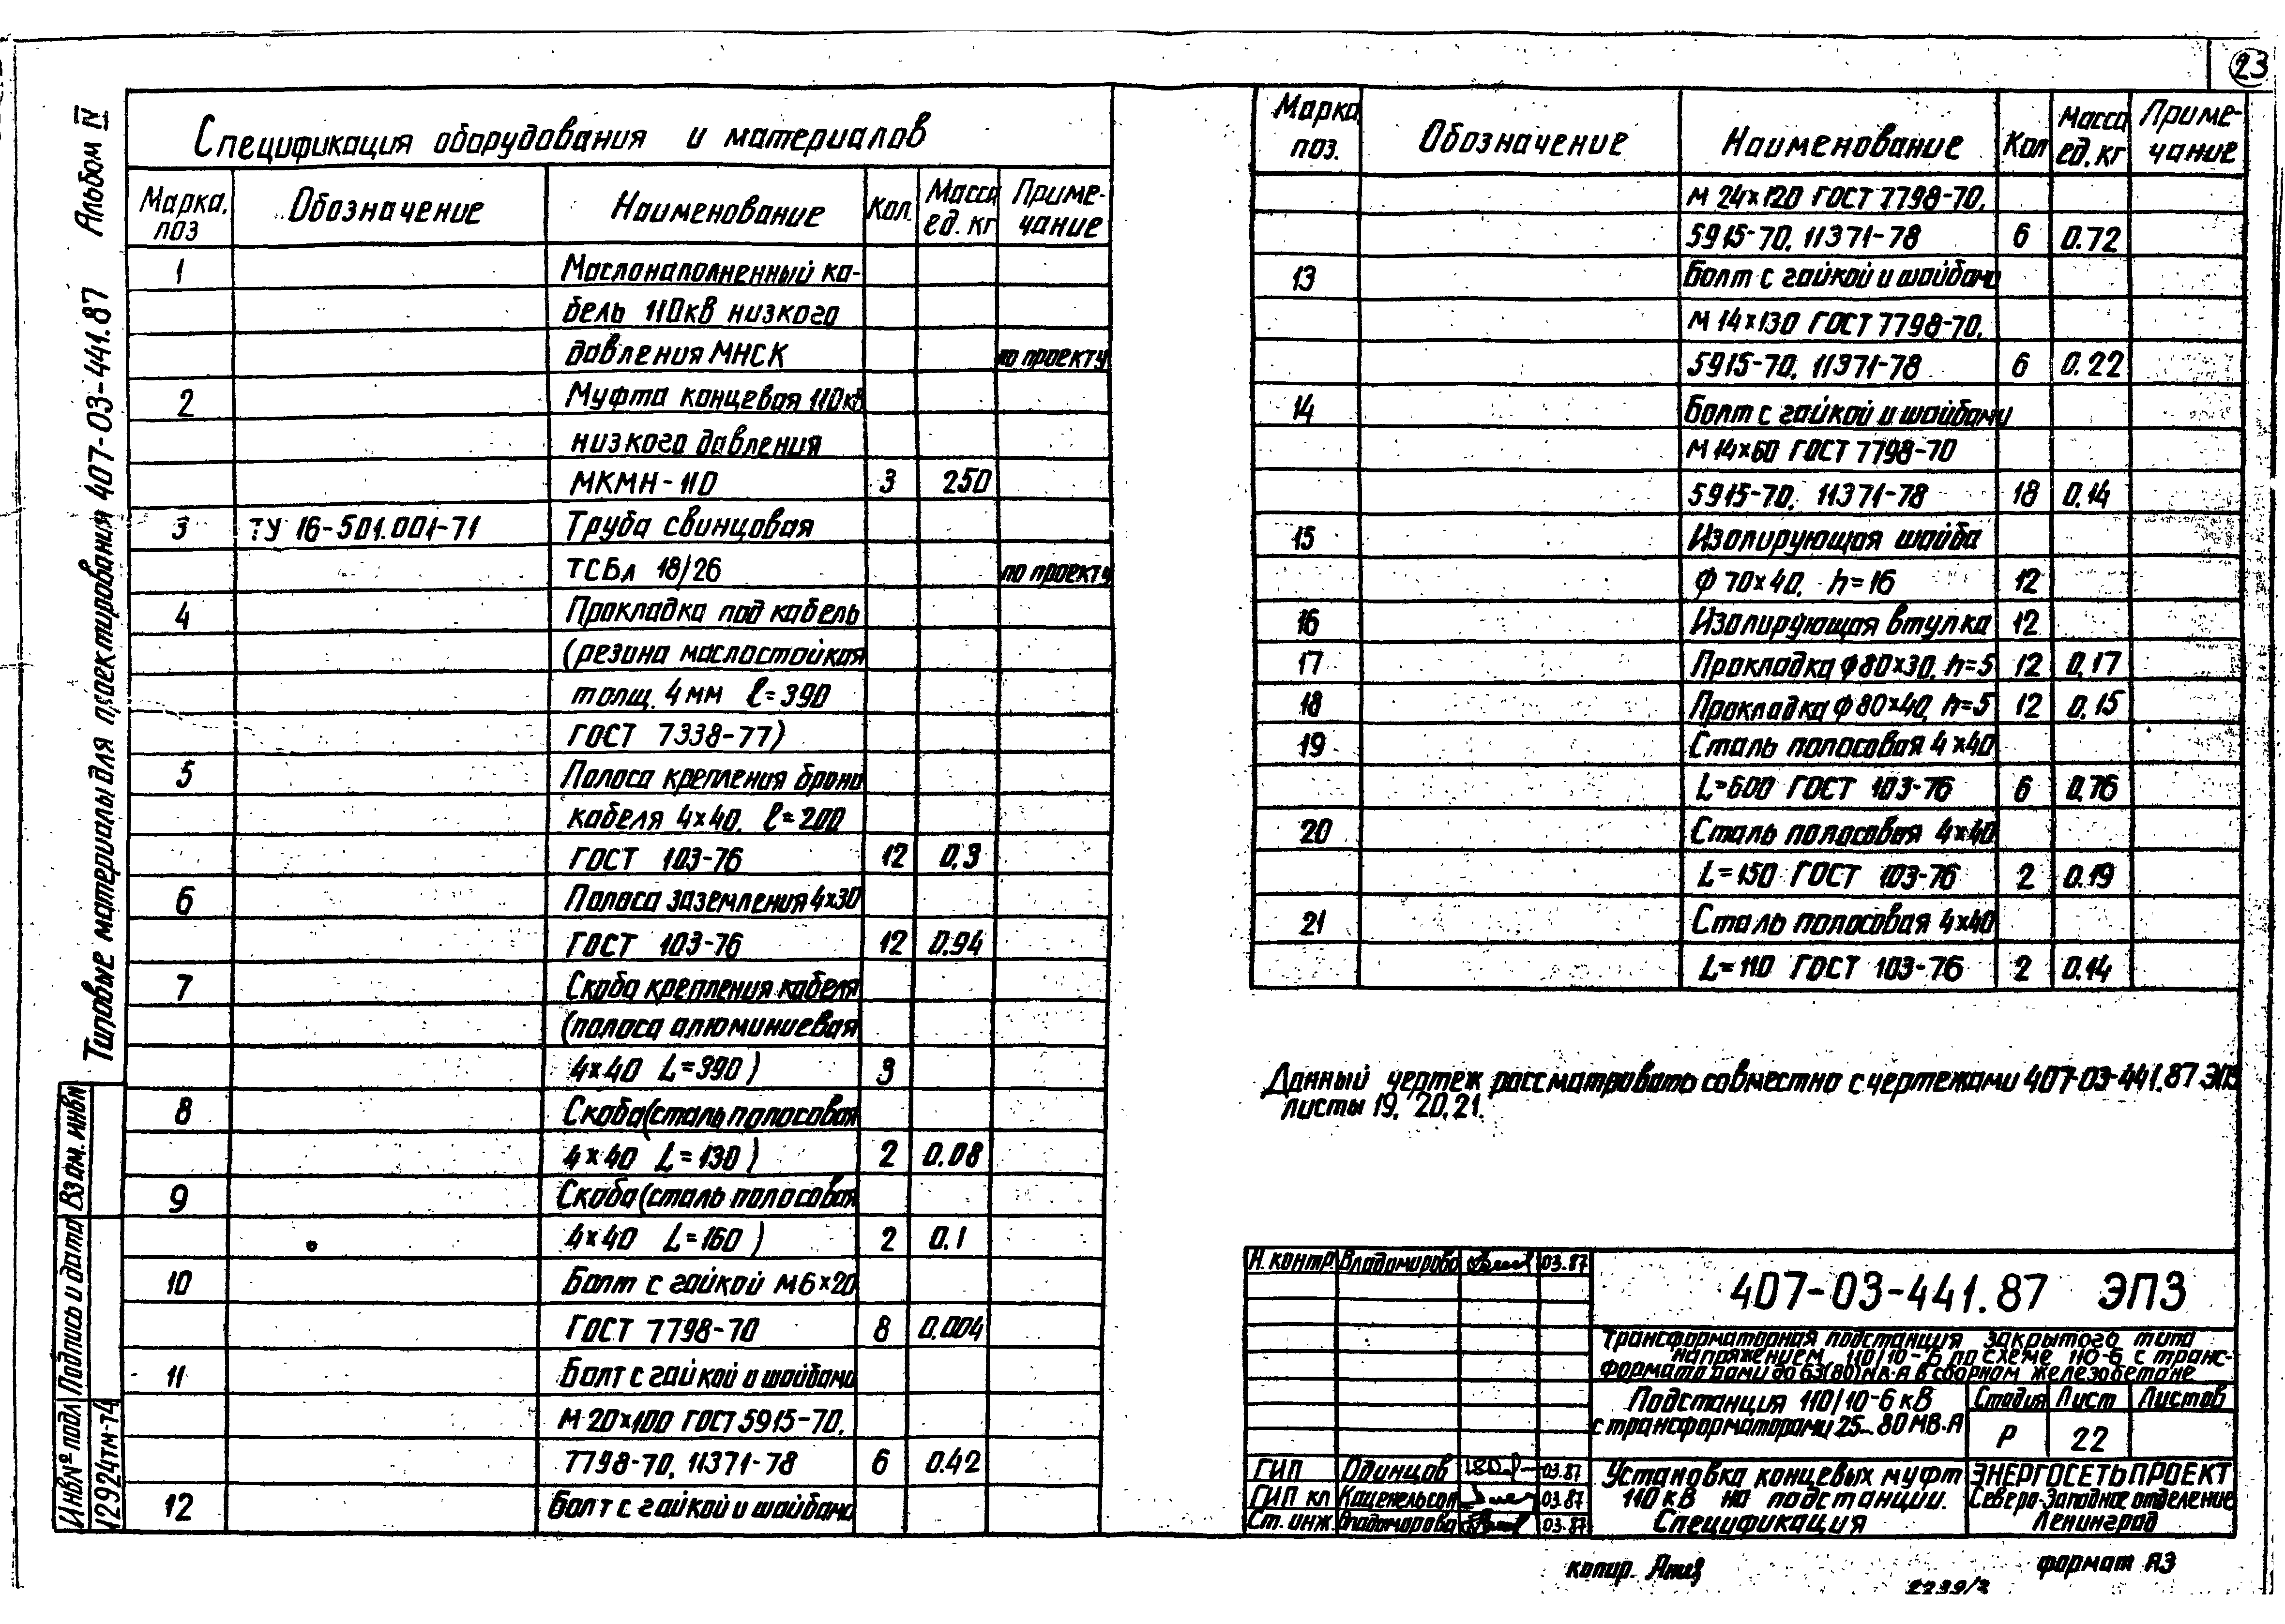 23
Альбом IV
Типовые материалы для проектирования 407-03-441.87
Спецификация оборудования и материалов
Марка, поз Обозначение Наименование Кол. Масса ед. кг Приме-чание
1 Маслонаполненный ка-
бель 110кВ низкого
давления МНСК по проекту
2 Муфта концевая 110кВ
низкого давления
МКМН-110 3 250
3 ТУ 16-501.001-71 Труба свинцовая
ТСБл 18/26 по проекту
4 Прокладка под кабель
(резина маслостойкая
толщ. 4 мм ℓ=390
ГОСТ 7338-77)
5 Полоса крепления брони
кабеля 4×40, ℓ=200
ГОСТ 103-76 12 0,3
6 Полоса заземления 4×30
ГОСТ 103-76 12 0.94
7 Скоба крепления кабеля
(полоса алюминиевая
4×40 L=390) 3
8 Скоба (сталь полосовая
4×40 L=130) 2 0.08
9 Скоба (сталь полосовая
4×40 L=160) 2 0.1
10 Болт с гайкой М6×20
ГОСТ 7798-70 8 0.004
11 Болт с гайкой и шайбами
М 20×100 ГОСТ 5915-70,
7798-70, 11371-78 6 0.42
12 Болт с гайкой и шайбами
Марка поз. Обозначение Наименование Кол Масса ед. кг Приме-чание
М 24×120 ГОСТ 7798-70,
5915-70, 11371-78 6 0.72
13 Болт с гайкой и шайбами
М 14×130 ГОСТ 7798-70,
5915-70, 11371-78 6 0.22
14 Болт с гайкой и шайбами
М 14×60 ГОСТ 7798-70
5915-70, 11371-78 18 0.14
15 Изолирующая шайба
Ф 70×40, h=16 12
16 Изолирующая втулка 12
17 Прокладка Ф80×30, h=5 12 0,17
18 Прокладка Ф80×40, h=5 12 0,15
19 Сталь полосовая 4×40
L=600 ГОСТ 103-76 6 0.76
20 Сталь полосовая 4×40
L=150 ГОСТ 103-76 2 0.19
21 Сталь полосовая 4×40
L=110 ГОСТ 103-76 2 0.14
Данный чертеж рассматривать совместно с чертежами 407-03-441.87 ЭП3
листы 19, 20, 21.
Н. контр. Владимирова 03.87
407-03-441.87 ЭП3
Трансформаторная подстанция закрытого типа
напряжением 110/10-6 по схеме 110-6 с транс-
форматорами до 63(80) МВ·А в сборном железобетоне
Подстанция 110/10-6 кВ
с трансформаторами 25...80 МВ·А
Стадия Лист Листов
Р 22
ГИП Одинцов 03.87
ГИП кл Каценельсон 03.87
Ст. инж. Владимирова 03.87
Установка концевых муфт
110 кВ на подстанции.
Спецификация
ЭНЕРГОСЕТЬПРОЕКТ
Северо-Западное отделение
Ленинград
Взам. инв№
Подпись и дата
Инв№ подл
12924тм-т4
копир.
формат А3